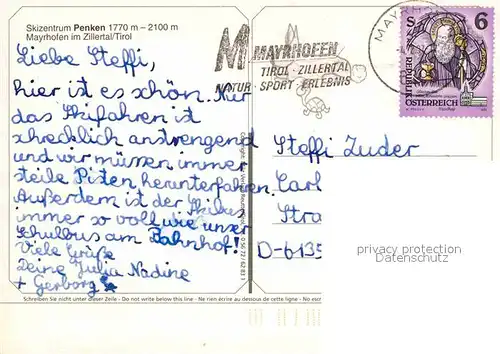 Skizentrum Penken 1770 m – 2100 m
Mayrhofen im Zillertal/Tirol
Liebe Steffi,
hier ist es schön. Nur
das Skifahren ist
schrecklich anstrengend
und wir müssen immer
steile Pisten herunterfahren.
Außerdem ist der Skibus
immer so voll wie unser
Schulbus am Bahnhof!
Viele Grüße
Deine Julia Nadine
+ Gerborg
Schreiben Sie nicht unter dieser Zeile - Do not write below this line - Ne rien écrire au dessous de cette ligne - No escribir
MAYRHOFEN
TIROL - ZILLERTAL
NATUR - SPORT - ERLEBNIS
MAYRHO
S 6
REPUBLIK
ÖSTERREICH
Steffi Zuder
Carl
Stra
D-6135
privacy protection
Datenschutz